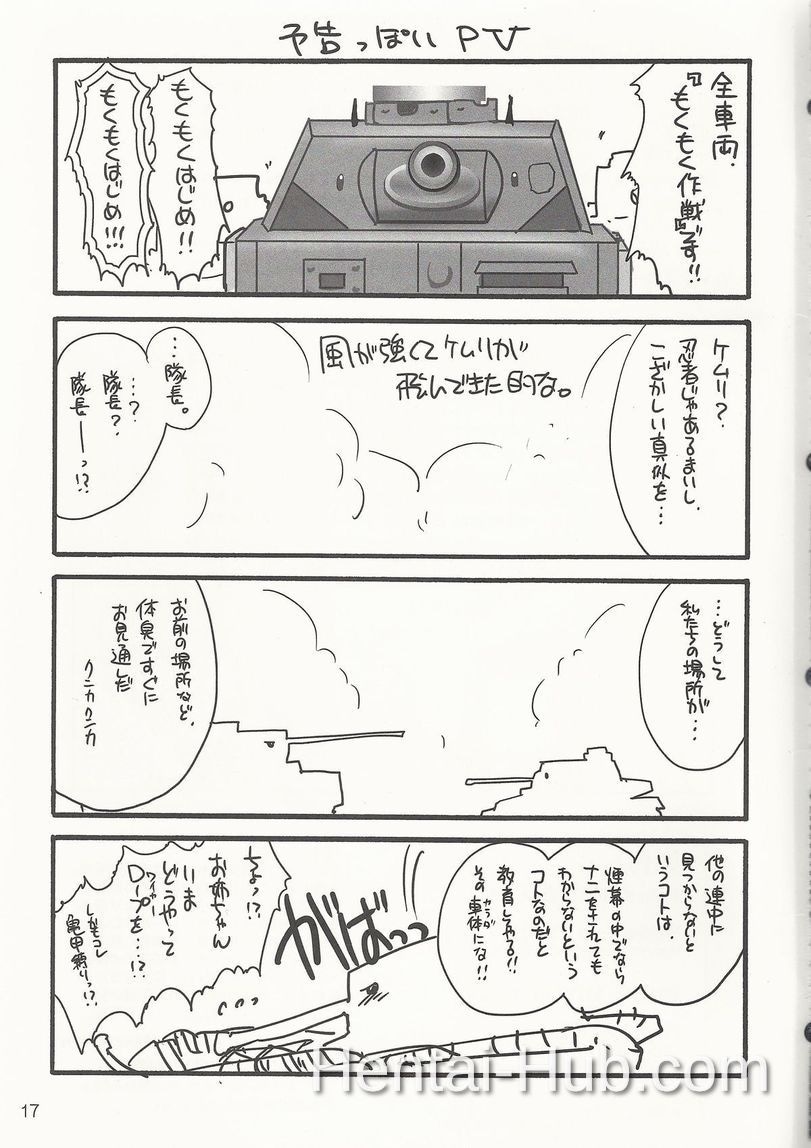 予告っぽいPV
全車両、
『もくもく作戦』です!!
もくもくはじめ!!
もくもくはじめ!!!
ケムリ?
忍者じゃあるまいし、
こざかしい真似を…
風が強くてケムリが
飛んできた的な。
…隊長。
…?
隊長?
隊長ーっ!?
…どうして
私たちの場所が…
お前の場所など、
体臭ですぐに
お見通しだ
クンカクンカ
他の連中に
見つからないと
いうコトは、
煙幕の中でなら
ナニをされても
わからないという
コトなのだと
教育してやる!!
その車体にな!!
カラダ
がばっっ
ちょっ!?
お姉ちゃん
いま
どうやって
ロープを…!?
ワイヤー
しかもコレ
亀甲縛りっ!?
17
Hentai-Hub.com